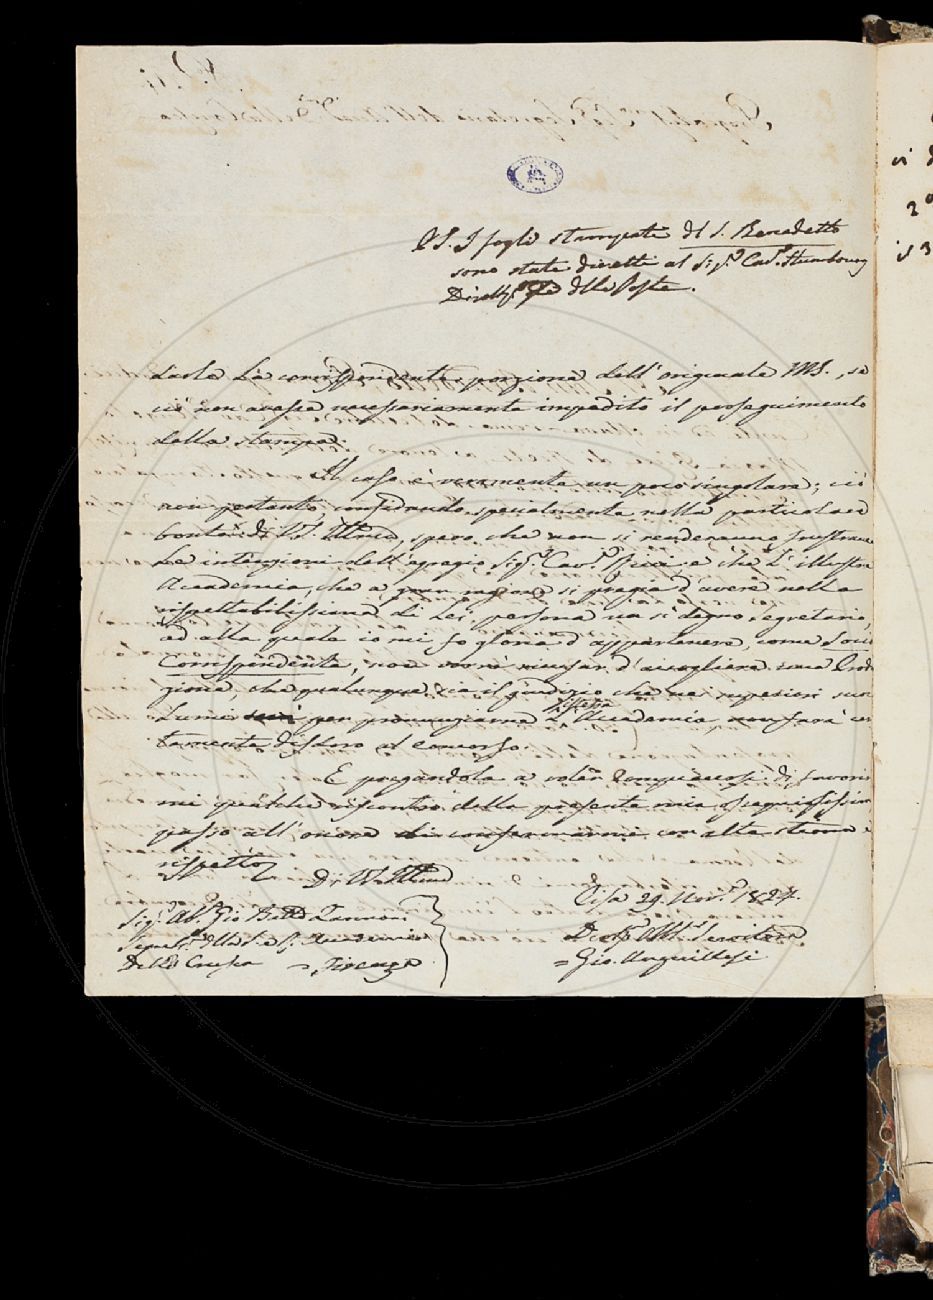 PS. I fogli stampati del S. Benedetto
sono stati diretti al Sig.r Cav.r
Dirett.e delle Poste.
darle la corrispondente porzione dell'originale MS., se
ciò non avesse necessariamente impedito il proseguimento
della stampa.
Il caso è veramente un poco singolare; ciò
non pertanto, confidando specialmente nella particolare
bontà di VS. Illma, spero, che non si renderanno
le intenzioni dell'egregio Sig.r Cav.r Ricci e che l'illustre
Accademia, che a gran ragione si pregia d'avere nella
rispettabilissima di Lei persona un sì degno segretario,
ed alla quale io mi fo gloria d'appartenere, come Socio
Corrispondente, non vorrà ricusar d'accogliere una
zione che qualunque sia il giudizio che ne
Lumi per pronunziarne l'istessa Accademia, non farà cer
tamente disdoro al concorso.
E pregandola a voler compiacersi di favorir
mi qualche riscontro della presente mia,
passo all'onore di confermarmi con alta stima e
rispetto
Di VS. Illma
Pisa 29 Nov.e 1824.
Sig.r Ab.e Gio Batta Zannoni
Segret.o dell' Accademia
Della Crusca = Firenze
Dev.o Obb.o Servitore
= Gio. Anguillesi